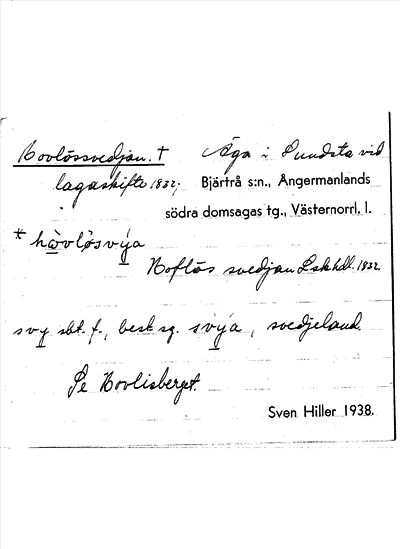 Hovlössvedjan. † Äga i Sundsta vid
lagaskifte 1832; Bjärtrå s:n., Ångermanlands
södra domsagas tg., Västernorrl. l.
* hὰvlösvy̲a
Hoflös svedjan Lskhdl. 1832.
svy̲ sbt. f., best. sg. svy̲a, svedjeland.
Se Hovlisberget.
Sven Hiller 1938.